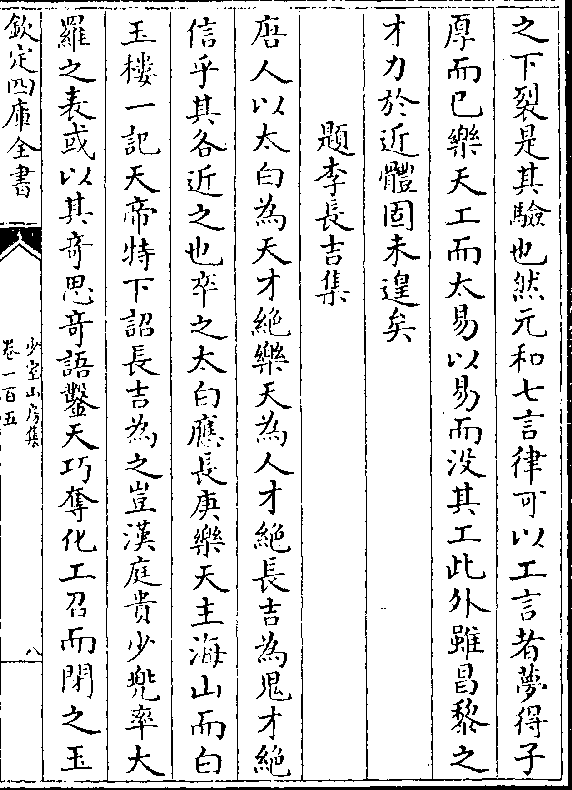 之下裂是其驗也然元和七言律可以工言者夢得子
厚而已樂天工而太易以易而没其工此外雖昌黎之
才力於近體固未遑矣
題李長吉集
唐人以太白為天才絶樂天為人才絶長吉為鬼才絶
信乎其各近之也卒之太白應長庚樂天主海山而白
玉樓一記天帝特下詔長吉為之豈漢庭貴少兜率大
羅之表或以其奇思竒語鑿天巧奪化工召而閉之玉
欽定四庫全書
少室山房集
卷一百五
八